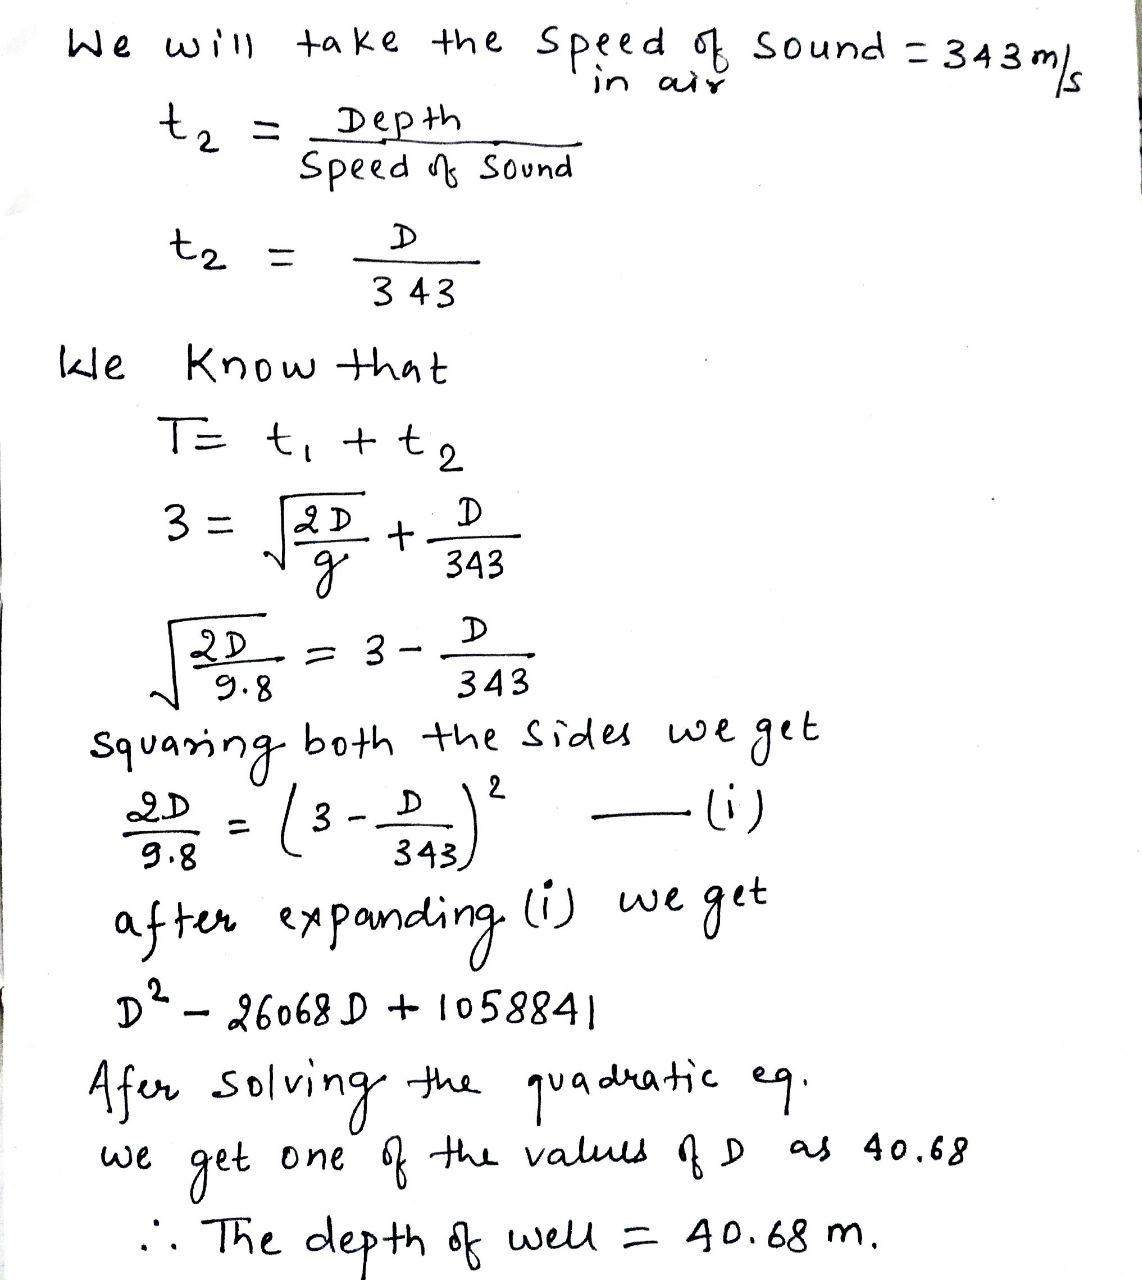 We will take the speed of sound = 343 m/s
in air
t₂ = Depth / Speed of Sound
t₂ = D / 343
We Know that
T = t₁ + t₂
3 = √(2D/g) + D/343
√(2D/9.8) = 3 - D/343
squaring both the sides we get
2D/9.8 = (3 - D/343)² — (i)
after expanding (i) we get
D² - 26068 D + 1058841
Afer solving the quadratic eq.
we get one of the values of D as 40.68
∴ The depth of well = 40.68 m.